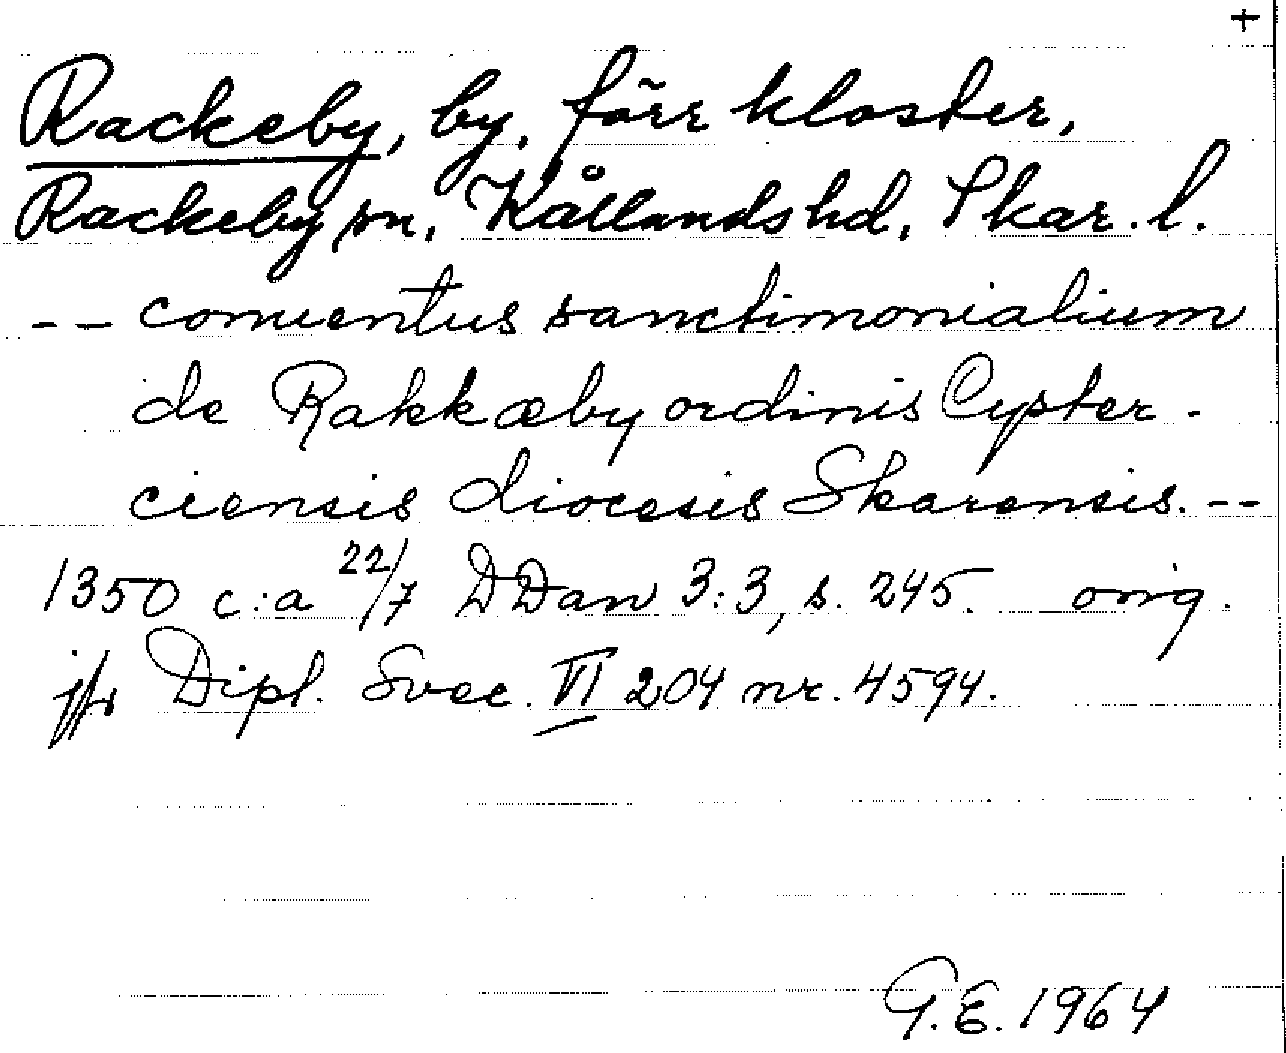 +
Rackeby, by, förr kloster,
Rackeby sn, Kållands hd, Skar. l.
-- conuentus sanctimonialium
de Rakkæby ordinis Cyster-
ciensis diocesis Skarensis. --
1350 c:a 22/7 DDan 3:3, s. 245. orig.
jfr Dipl. Svec. VI 204 nr. 4594.
G.E. 1964